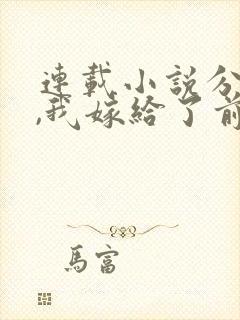 連載小說分
,我嫁給了前
馬富